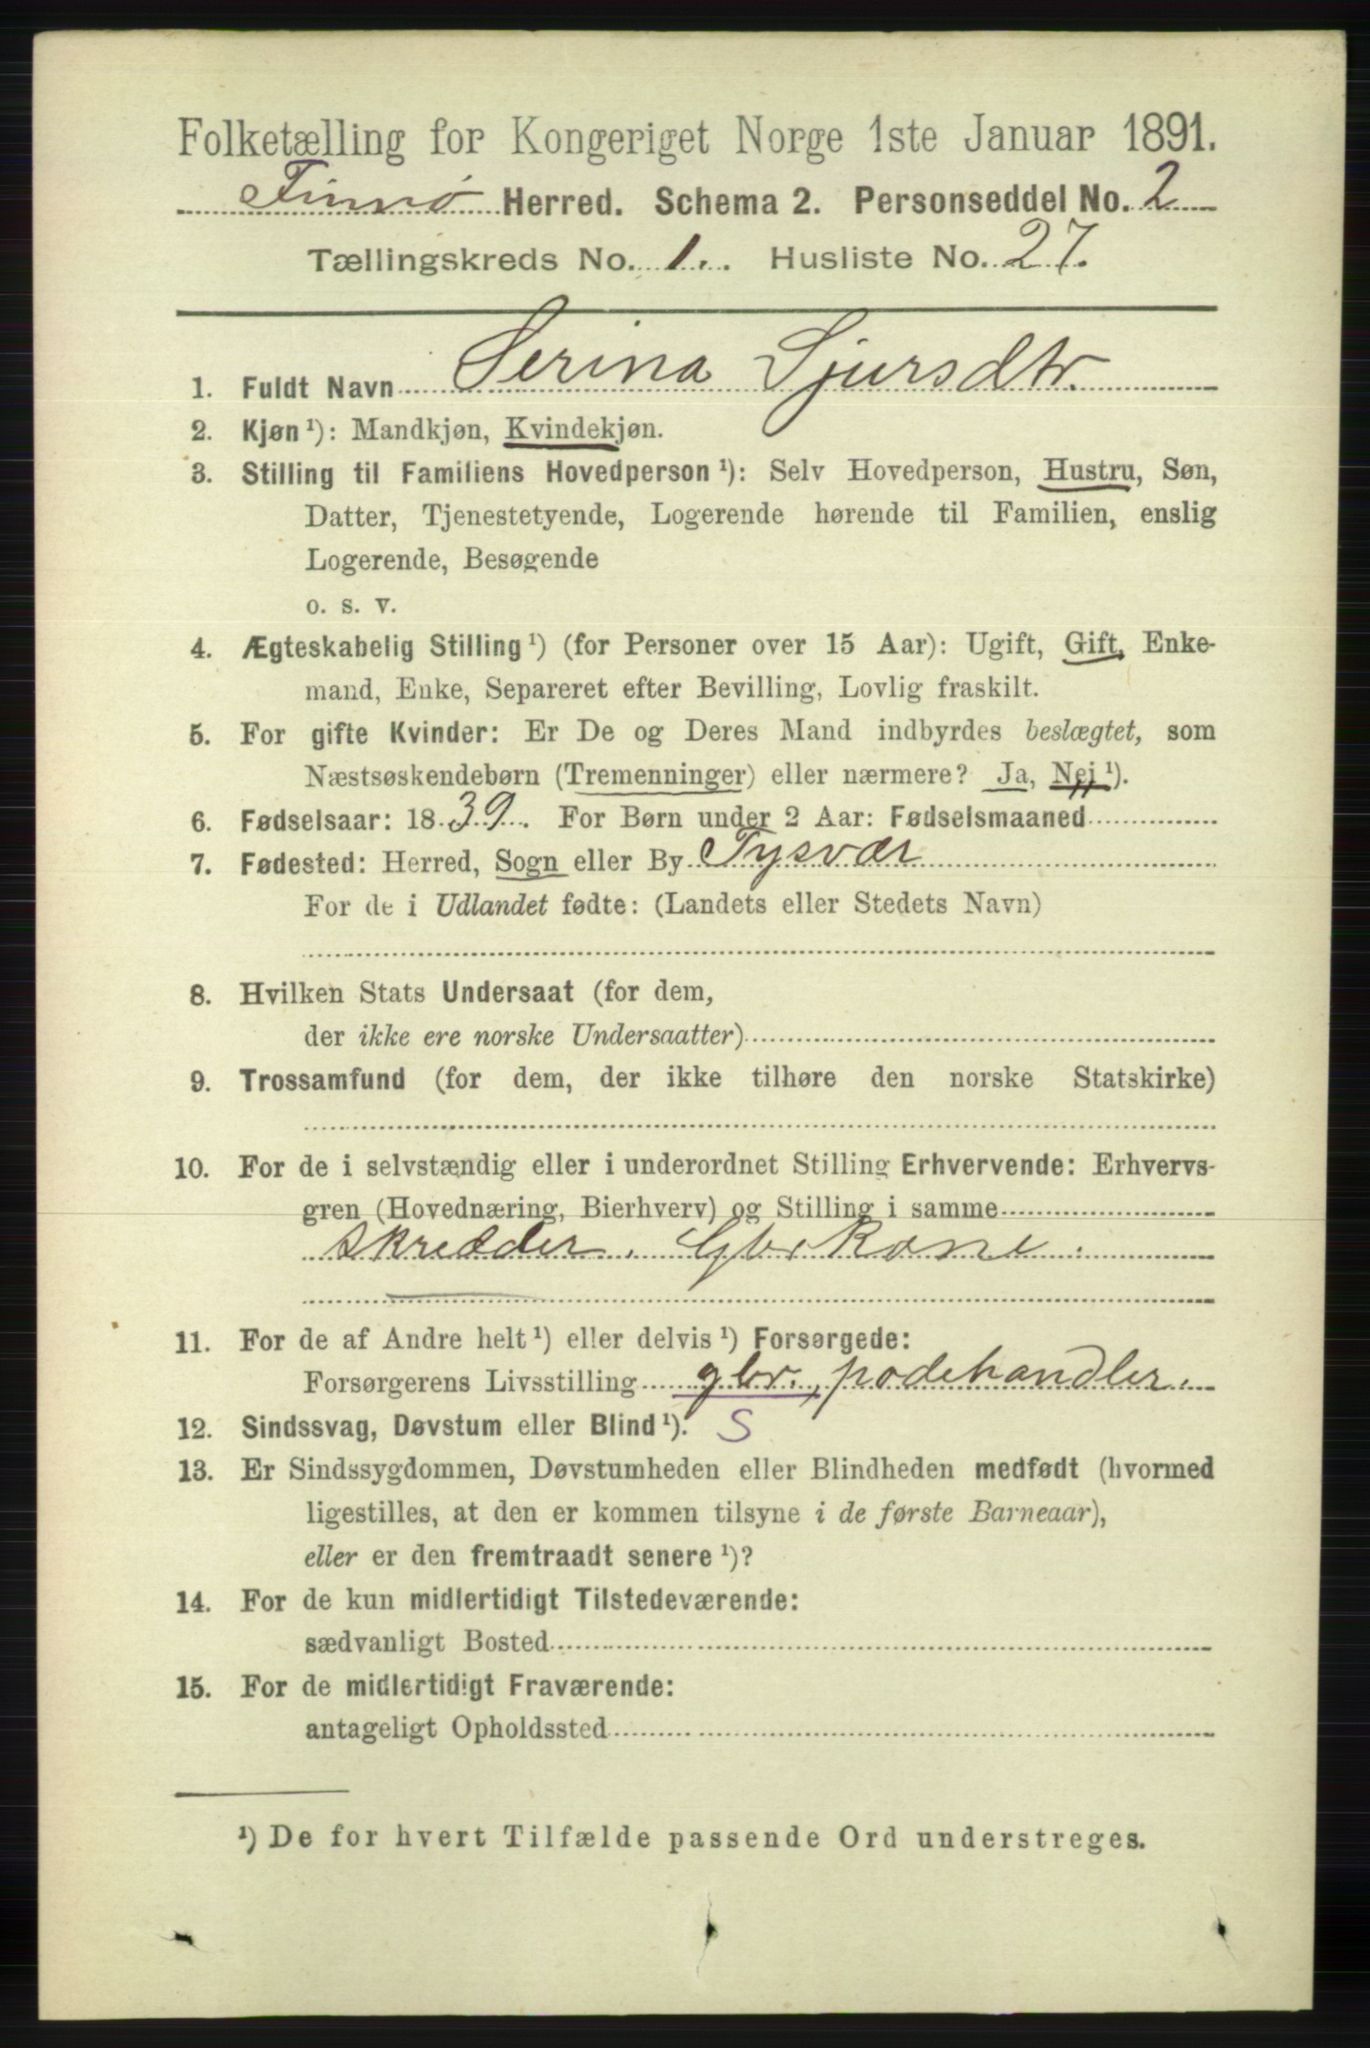 Folketælling for Kongeriget Norge 1ste Januar 1891.
Finnø Herred. Schema 2. Personseddel No. 2
Tællingskreds No. 1. Husliste No. 27.
1. Fuldt Navn Serina Sjursdtr.
2. Kjøn ¹): Mandkjøn, Kvindekjøn.
3. Stilling til Familiens Hovedperson ¹): Selv Hovedperson, Hustru, Søn,
Datter, Tjenestetyende, Logerende hørende til Familien, enslig
Logerende, Besøgende
o. s. v.
4. Ægteskabelig Stilling ¹) (for Personer over 15 Aar): Ugift, Gift, Enke-
mand, Enke, Separeret efter Bevilling, Lovlig fraskilt.
5. For gifte Kvinder: Er De og Deres Mand indbyrdes beslægtet, som
Næstsøskendebørn (Tremenninger) eller nærmere? Ja, Nej ¹).
6. Fødselsaar: 1839. For Børn under 2 Aar: Fødselsmaaned
7. Fødested: Herred, Sogn eller By Tysvær
For de i Udlandet fødte: (Landets eller Stedets Navn)
8. Hvilken Stats Undersaat (for dem,
der ikke ere norske Undersaatter)
9. Trossamfund (for dem, der ikke tilhøre den norske Statskirke)
10. For de i selvstændig eller i underordnet Stilling Erhvervende: Erhvervs-
gren (Hovednæring, Bierhverv) og Stilling i samme
skredder. Gbr Kone.
11. For de af Andre helt ¹) eller delvis ¹) Forsørgede:
Forsørgerens Livsstilling gbr., podehandler.
12. Sindssvag, Døvstum eller Blind ¹). S
13. Er Sindssygdommen, Døvstumheden eller Blindheden medfødt (hvormed
ligestilles, at den er kommen tilsyne i de første Barneaar),
eller er den fremtraadt senere ¹)?
14. For de kun midlertidigt Tilstedeværende:
sædvanligt Bosted
15. For de midlertidigt Fraværende:
antageligt Opholdssted
¹) De for hvert Tilfælde passende Ord understreges.